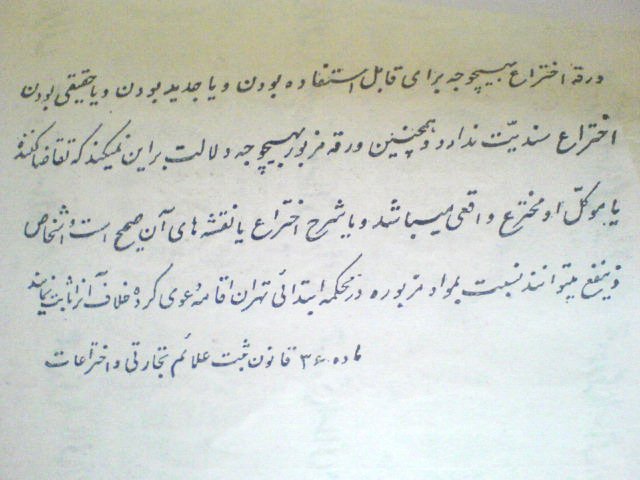 ورقهٔ اختراع بهیچوجه برای قابل استفاده بودن و یا جدید بودن و یا حقیقی بودن
اختراع سندیّت ندارد و همچنین ورقه مزبور بهیچوجه دلالت براین نمیکند که تقاضا کننده
یا موکّل او مخترع واقعی میباشد و یا شرح اختراع یا نقشه های آن صحیح است و اشخاص
ذینفع میتوانند نسبت بمواد مزبوره در محکمه ابتدائی تهران اقامهٔ دعوی کرده خلاف آنرا ثابت نمایند
ماده ۳۶ قانون ثبت علائم تجارتی و اختراعات